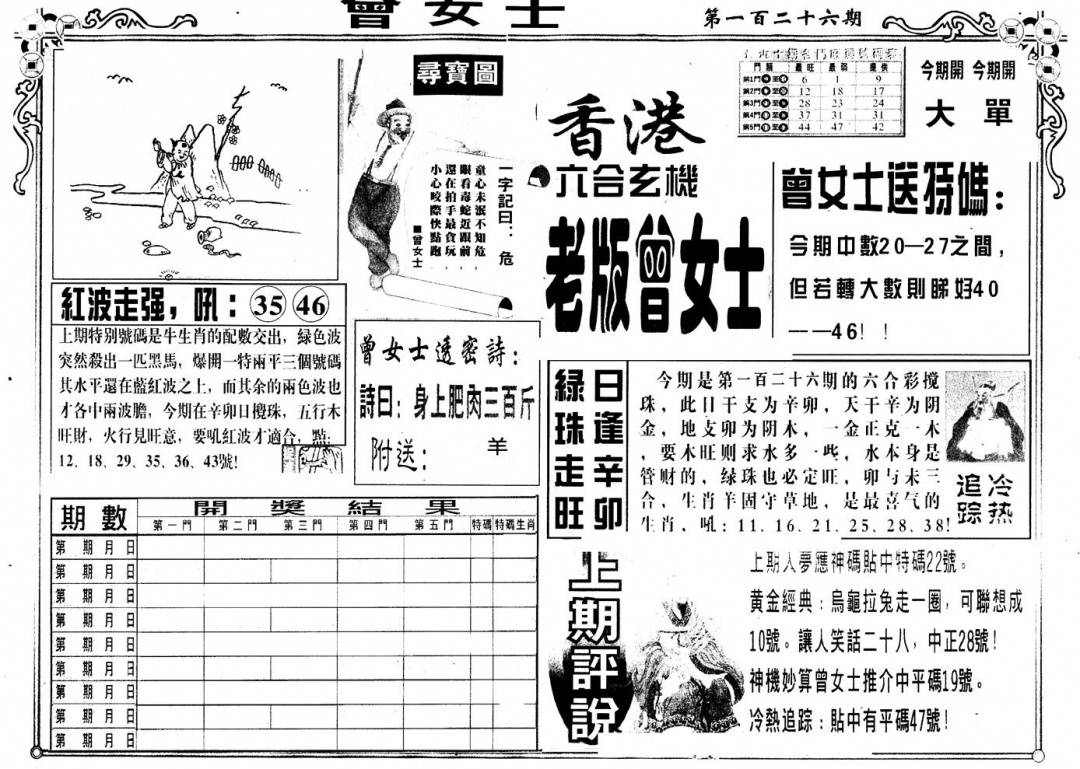 曾女士
第一百二十六期
尋寶圖
一字記曰：危
童心未泯不知危，
眼看毒蛇近跟前，
還在拍手最貪玩，
小心咬際快點跑。
■曾女士
香港
六合玄機
老版曾女士
門類 最旺 最弱 提供
第1門 至 6 1 9
第2門 至 12 18 17
第3門 至 28 23 24
第4門 至 37 31 31
第5門 至 44 47 42
今期開 今期開
大 單
曾女士送特碼：
今期中數20—27之間，
但若轉大數則睇好40
——46！！
紅波走强，吼：35 46
上期特别號碼是牛生肖的配數交出，緑色波
突然殺出一匹黑馬，爆開一特兩平三個號碼
其水平還在藍紅波之上，而其余的兩色波也
才各中兩波膽，今期在辛卯日攪珠，五行木
旺財，火行見旺意，要吼紅波才適合，點：
12、18、29、35、36、43號!
曾女士透密詩：
詩曰：身上肥肉三百斤
附送： 羊
日逢辛卯
緑珠走旺
今期是第一百二十六期的六合彩攪
珠，此日干支为辛卯，天干辛为阴
金，地支卯为阴木，一金正克一木
，要木旺则求水多一些，水本身是
管财的，绿珠也必定旺，卯与未三
合，生肖羊固守草地，是最喜气的
生肖，吼：11、16、21、25、28、38!
冷热
追踪
期數 開獎結果
第一門 第二門 第三門 第四門 第五門 特碼 特碼生肖
第 期 月 日
第 期 月 日
第 期 月 日
第 期 月 日
第 期 月 日
第 期 月 日
第 期 月 日
第 期 月 日
第 期 月 日
上期評說
上期人夢應神碼貼中特碼22號。
黄金經典：烏龜拉兔走一圈，可聯想成
10號。讓人笑話二十八，中正28號！
神機妙算曾女士推介中平碼19號。
冷熱追踪：貼中有平碼47號！